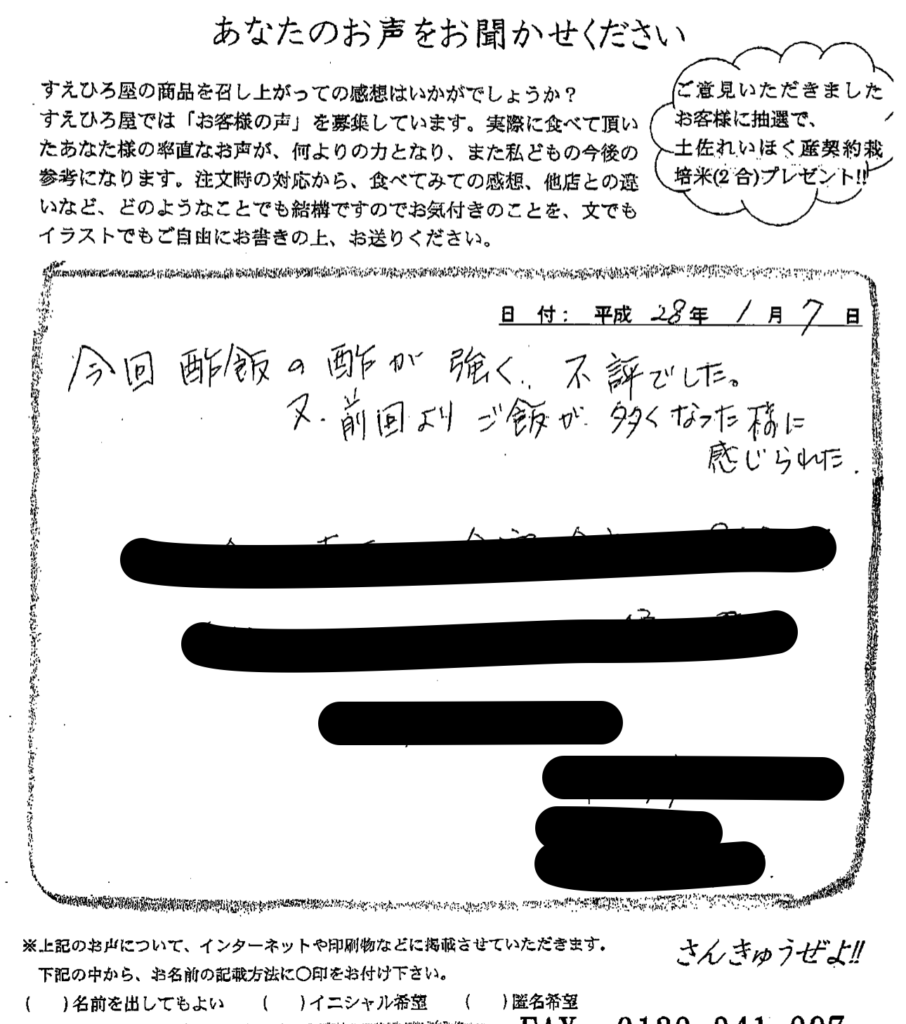 あなたのお声をお聞かせください
すえひろ屋の商品を召し上がっての感想はいかがでしょうか？
すえひろ屋では「お客様の声」を募集しています。実際に食べて頂い
たあなた様の率直なお声が、何よりの力となり、また私どもの今後の
参考になります。注文時の対応から、食べてみての感想、他店との違
いなど、どのようなことでも結構ですのでお気付きのことを、文でも
イラストでもご自由にお書きの上、お送りください。
ご意見いただきました
お客様に抽選で、
土佐れいほく産契約栽
培米(2合)プレゼント!!
日 付： 平成 28年 1月 7日
今回 酢飯の酢が 強く、不評でした。
又、前回より ご飯が 多くなった様に
感じられた.
※上記のお声について、インターネットや印刷物などに掲載させていただきます。
下記の中から、お名前の記載方法に〇印をお付け下さい。
さんきゅうぜよ!!
(　)名前を出してもよい　(　)イニシャル希望　(　)匿名希望
FAX 0120-941-997